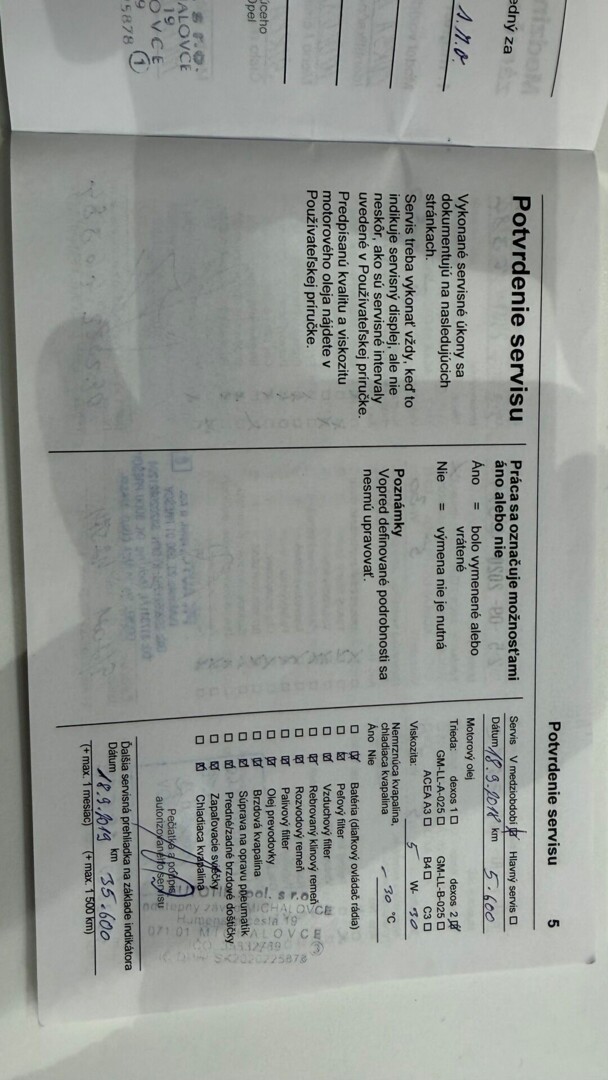 edný za
1.M.O.
úceho
Opel
s r.o.
ALOVCE
19
OVCE
5878 1
Potvrdenie servisu
5
Potvrdenie servisu
Vykonané servisné úkony sa
dokumentujú na nasledujúcich
stránkach.
Servis treba vykonať vždy, keď to
indikuje servisný displej, ale nie
neskôr, ako sú servisné intervaly
uvedené v Používateľskej príručke.
Predpísanú kvalitu a viskozitu
motorového oleja nájdete v
Používateľskej príručke.
Práca sa označuje možnosťami
áno alebo nie
Áno = bolo vymenené alebo
vrátené
Nie = výmena nie je nutná
Poznámky
Vopred definované podrobnosti sa
nesmú upravovať.
Servis V medziobdobí ☒ Hlavný servis ☐
Dátum 18.9.2018 km 5.600
Motorový olej
Trieda: dexos 1 ☐ dexos 2 ☒
GM-LL-A-025 ☐ GM-LL-B-025 ☐
ACEA A3 ☐ B4 ☐ C3 ☐
Viskozita: 5 W -30
Nemrznúca kvapalina,
chladiaca kvapalina - 30 °C
Áno Nie
☐ ☒ Batéria (diaľkový ovládač rádia)
☐ ☒ Peľový filter
☐ ☒ Vzduchový filter
☐ ☒ Rebrovaný klinový remeň
☐ ☒ Rozvodový remeň
☐ ☒ Palivový filter
☐ ☒ Olej prevodovky
☐ ☒ Brzdová kvapalina
☐ ☒ Súprava na opravu pneumatík
☐ ☒ Predné/zadné brzdové doštičky
☐ ☒ Zapaľovacie sviečky
☐ ☒ Chladiaca kvapalina
Pečiatka a podpis
autorizovaného servisu
pol. s r.o.
MICHALOVCE
19
071 01 MICHALOVCE
SK2020225878
Ďalšia servisná prehliadka na základe indikátora
Dátum 18.9.2019 km 35.600
(+ max. 1 mesiac) (+ max. 1 500 km)